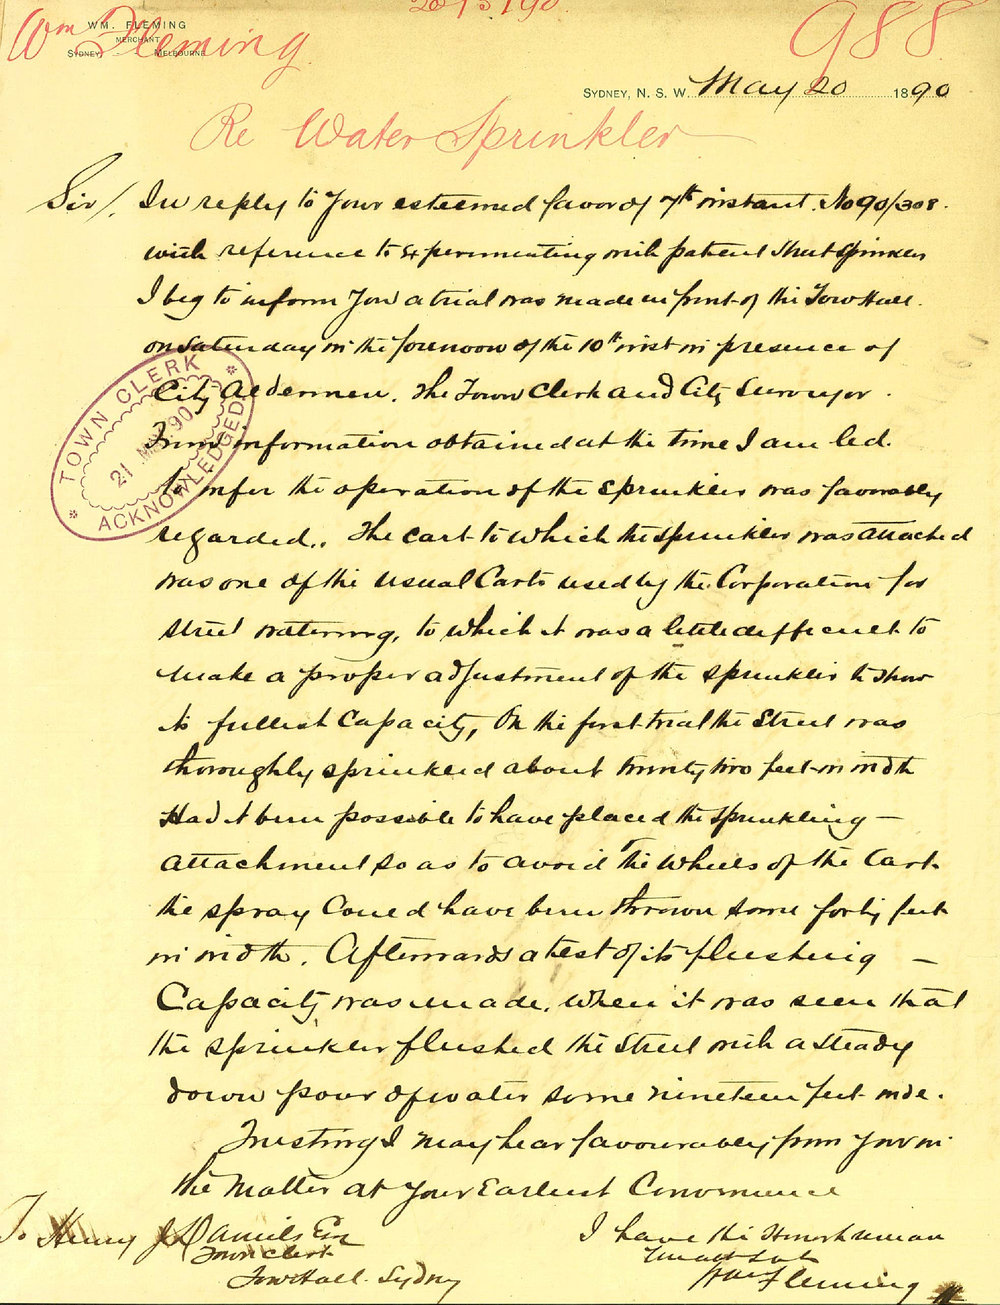 20/5/90
Wm Fleming
988
WM. FLEMING
MERCHANT
SYDNEY, MELBOURNE
SYDNEY, N. S. W. May 20 1890
Re Water Sprinkler
Sir/. In reply to Your esteemed favor of 7th instant. No 90/308.
with reference to Experimenting with patent Street Sprinkler
I beg to inform You a trial was made in front of the Town Hall.
on Saturday in the forenoon of the 10th inst in presence of
City Aldermen. The Town Clerk and City Surveyor.
From information obtained at the time I am led.
to infer the operation of the Sprinkler was favorably
regarded.. The Cart to which the Sprinkler was attached
was one of the usual Carts used by the Corporation for
Street watering, to which it was a little difficult to
make a proper adjustment of the Sprinkler to show
its fullest Capacity, On the first trial the Street was
thoroughly sprinkled about twenty two feet in width
Had it been possible to have placed the Sprinkling —
attachment so as to avoid the Wheels of the Cart.
the spray Could have been thrown some forty feet
in width. Afterwards a test of its flushing —
Capacity was made, when it was seen that
the sprinkler flushed the Street with a steady
down pour of water some nineteen feet wide.
Trusting I may hear favourably from You in
the Matter at Your Earliest Convenience
I have the Honor to remain
Your Obt Svt
Wm Fleming
To Henry J Daniels Esq
Town Clerk
Town Hall. Sydney
TOWN CLERK
21 MAY 90
ACKNOWLEDGED